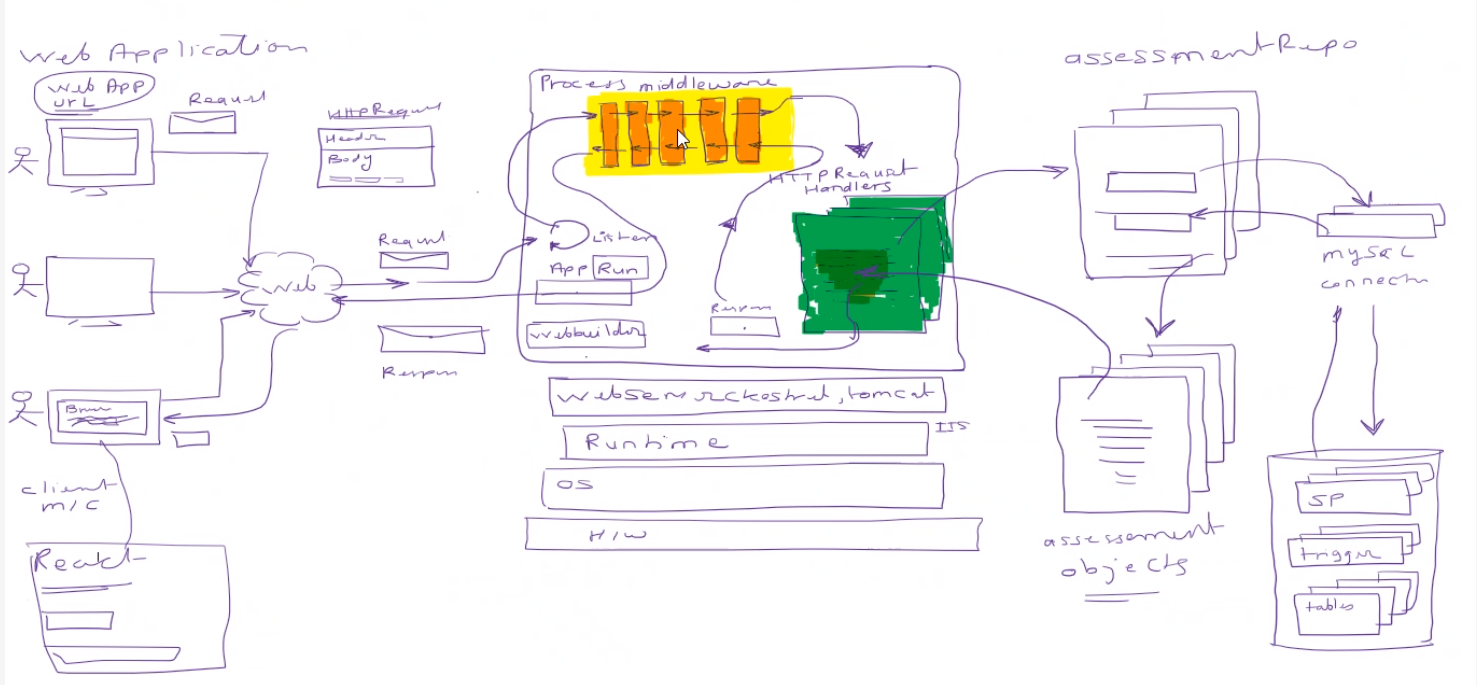 Web Application
Web App
URL
Request
HttpRequest
Header
Body
Request
Web
Respon
Brow
client
m/c
React
Process middleware
HTTP Request
Handlers
Listen
App Run
Respon
Webbuilder
kestrel, tomcat
IIS
Runtime
OS
H/W
assessmentRepo
mySQL
connectr
assessment
objects
SP
trigger
tables